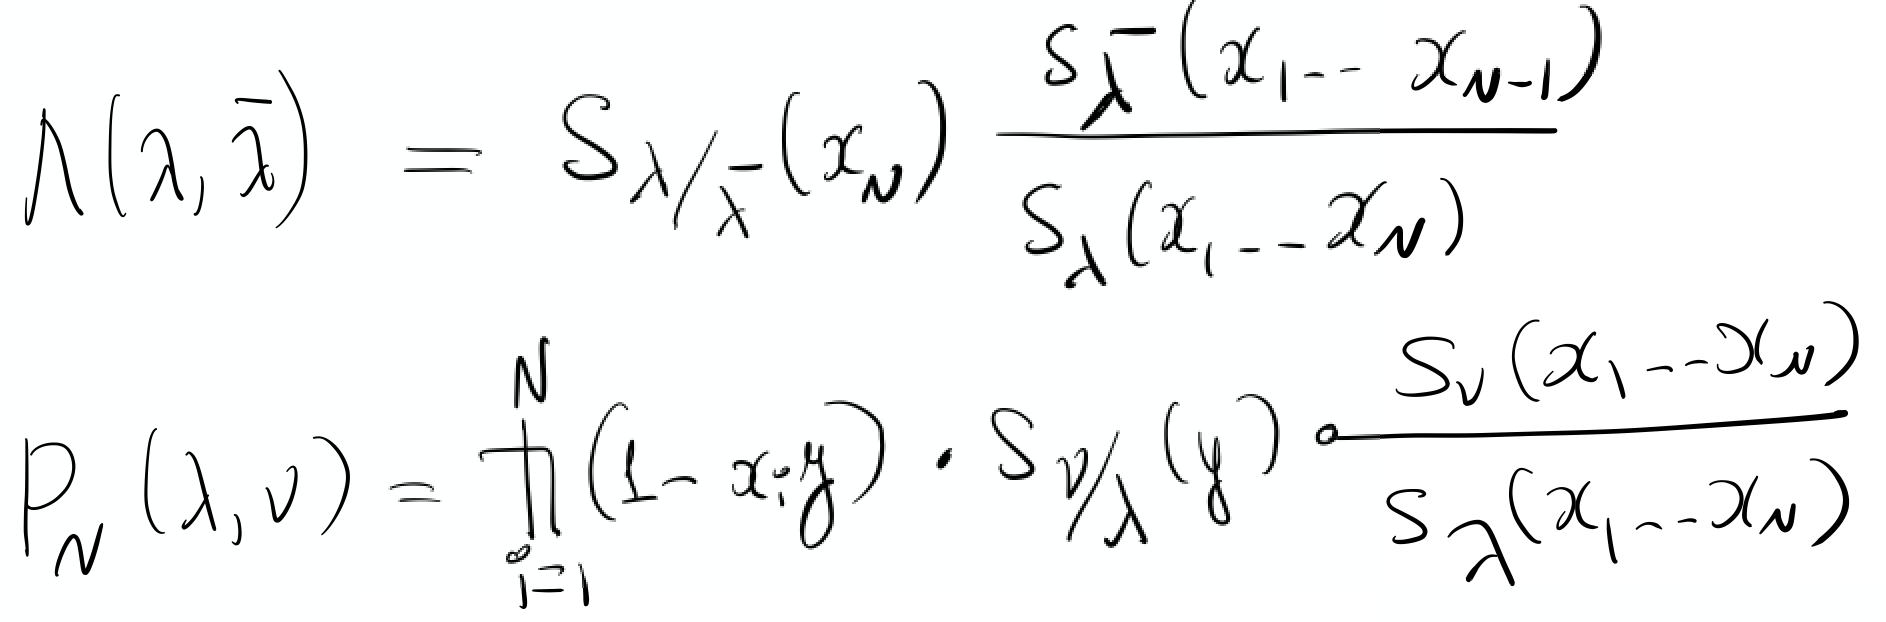 Λ(λ, λ̄) = S_{λ/λ̄}(x_N) \frac{S_{λ̄}(x_1 -- x_{N-1})}{S_λ(x_1 -- x_N)}
P_N(λ, ν) = \prod_{i=1}^{N} (1 - x_i y) · S_{ν/λ}(y) · \frac{S_ν(x_1 -- x_N)}{S_λ(x_1 -- x_N)}